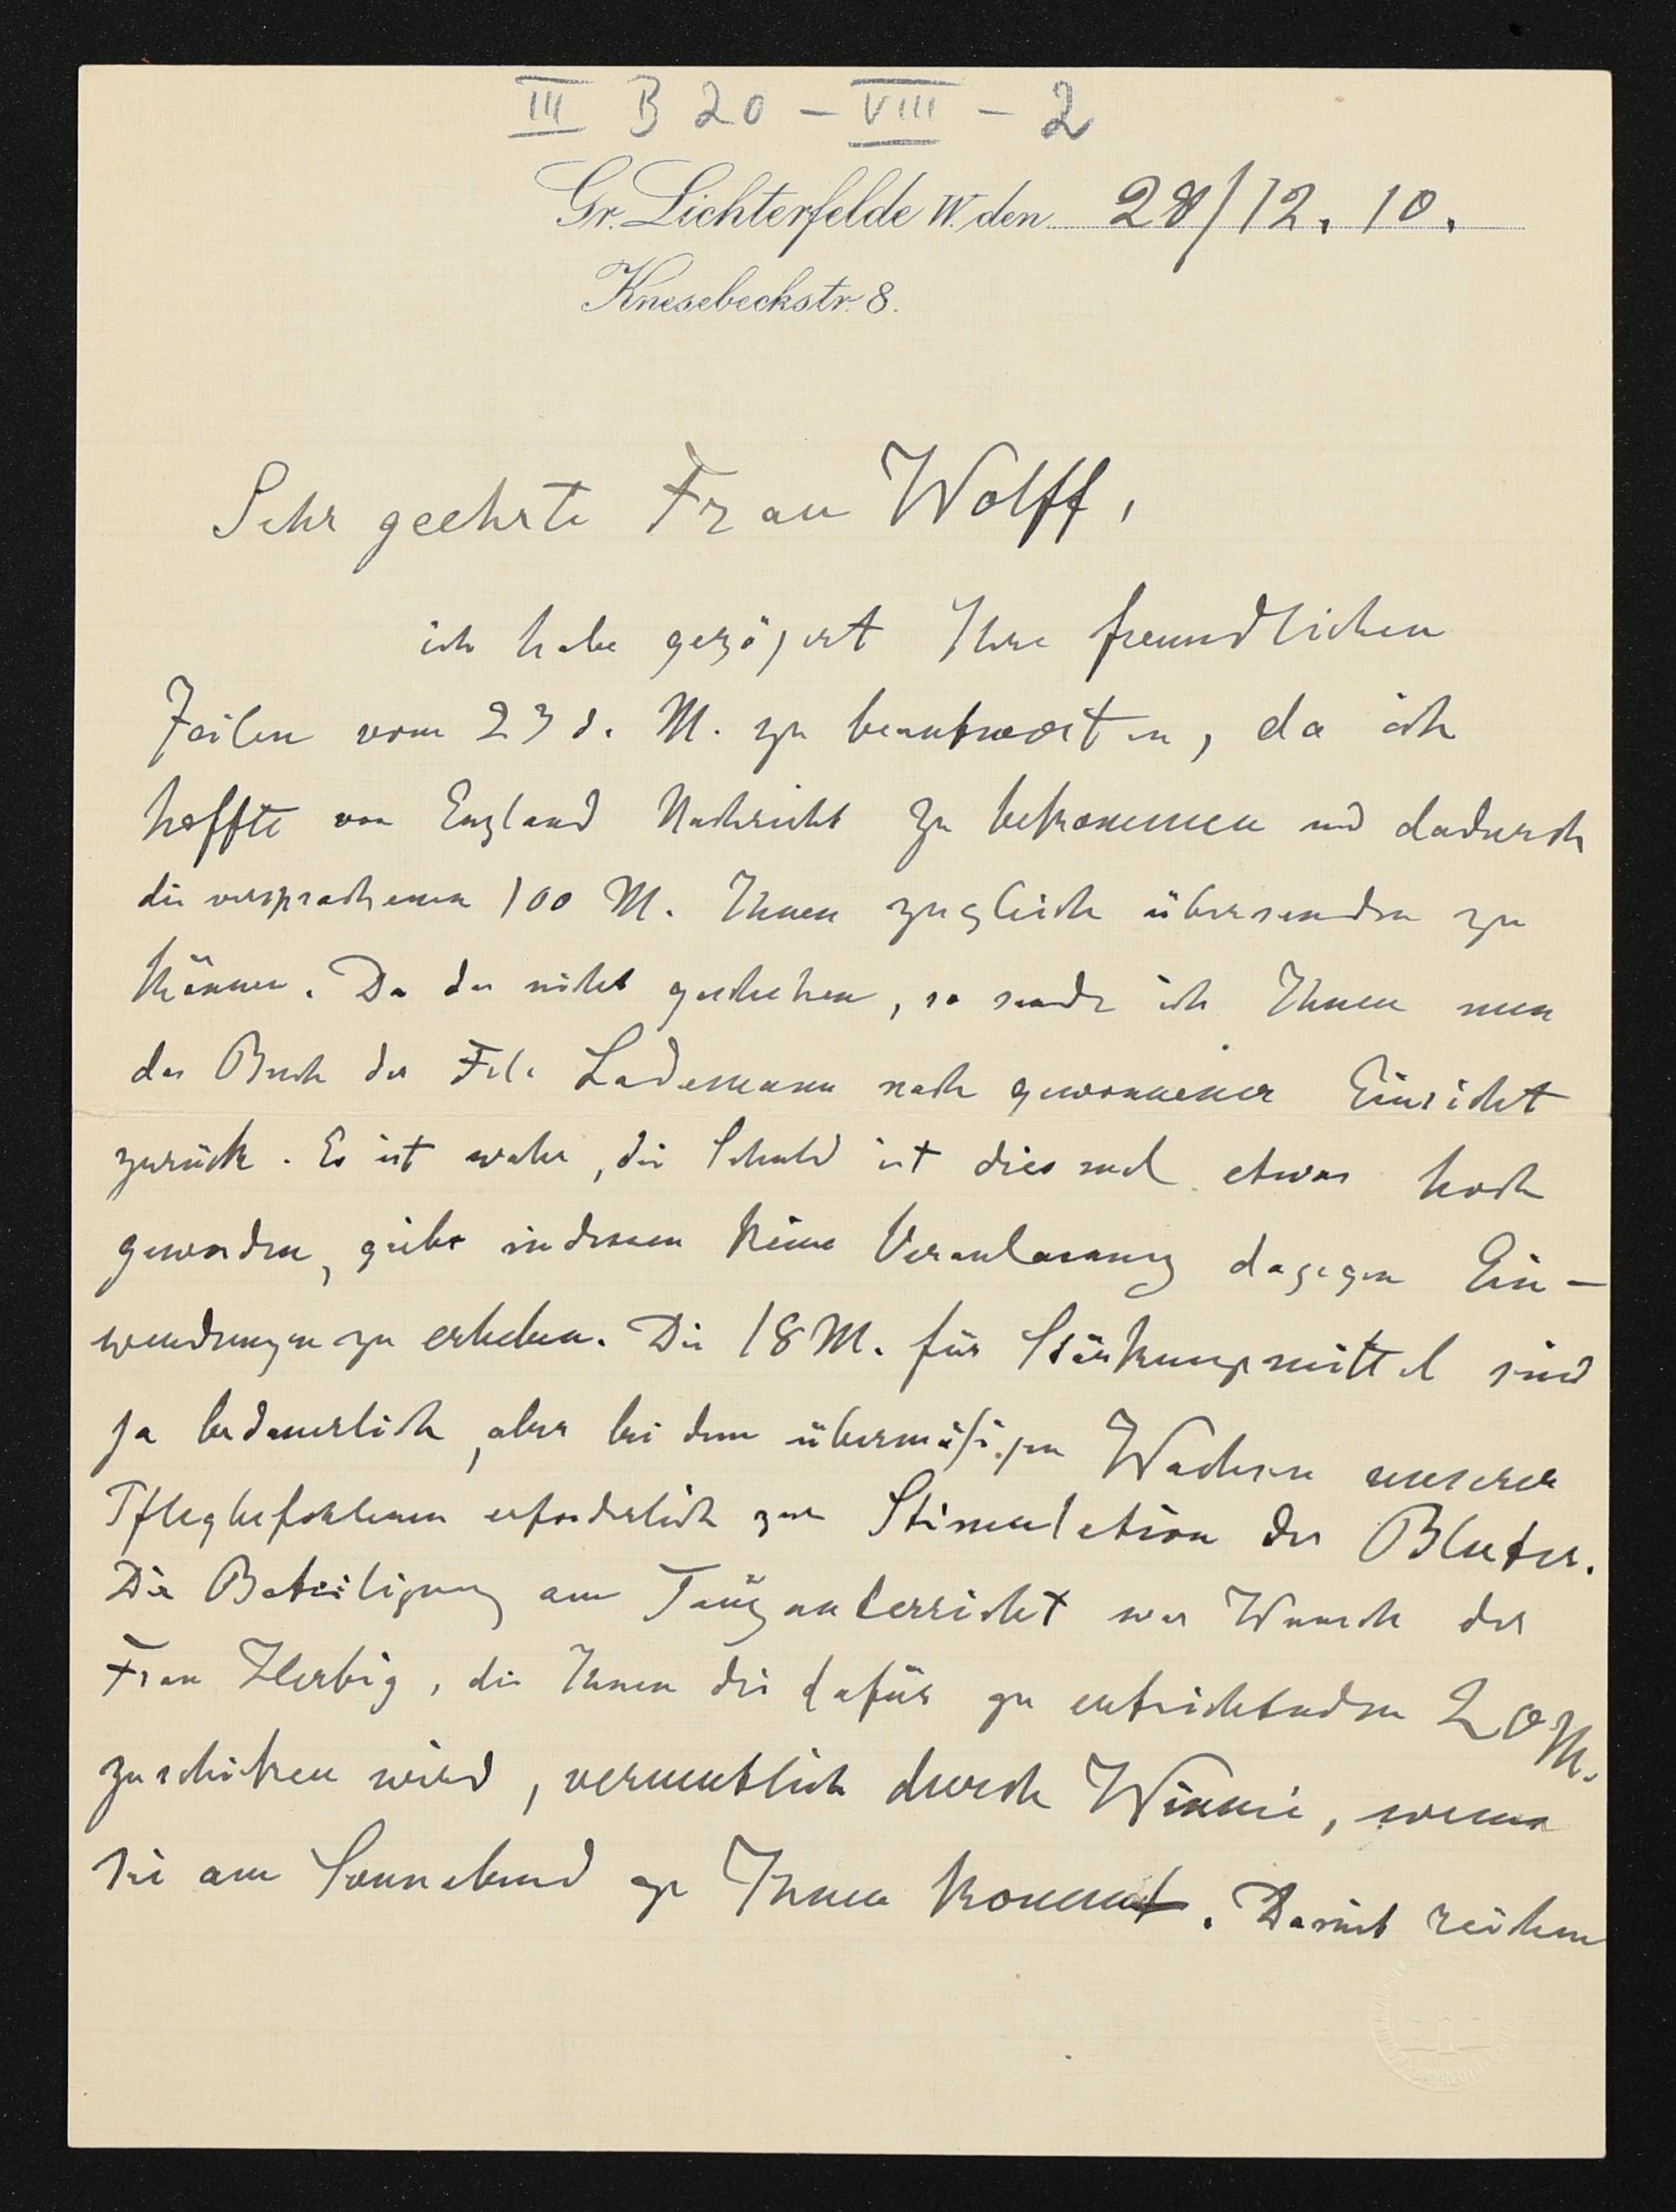 III B 20 – VIII – 2
Gr. Lichterfelde W. den 28/12. 10.
Knesebeckstr. 8.
Sehr geehrte Frau Wolff,
ich habe gezögert Ihre freundlichen
Zeilen vom 23 d. M. zu beantworten, da ich
hoffte von England Nachricht zu bekommen und dadurch
die versprochenen 100 M. Ihnen zugleich übersenden zu
können. Da das nicht geschehen, so sende ich Ihnen nun
das Buch des Frl. Lademann nach gewonnener Einsicht
zurück. Es ist wahr, die Schuld ist dies mal etwas hoch
geworden, giebt indessen keine Veranlassung dagegen Ein-
wendungen zu erheben. Die 18 M. für Stärkungsmittel sind
ja bedauerlich, aber bei dem übermäßigen Wachsen unserer
Pflegbefohlenen erforderlich zur Stimulation des Blutes.
Die Beteiligung am Tanzunterricht war Wunsch der
Frau Herbig, die Ihnen die dafür zu entrichtenden 20 M.
zuschicken wird, vermutlich durch Winnie, wenn
sie am Sonnabend zu Ihnen kommt. Damit reichen